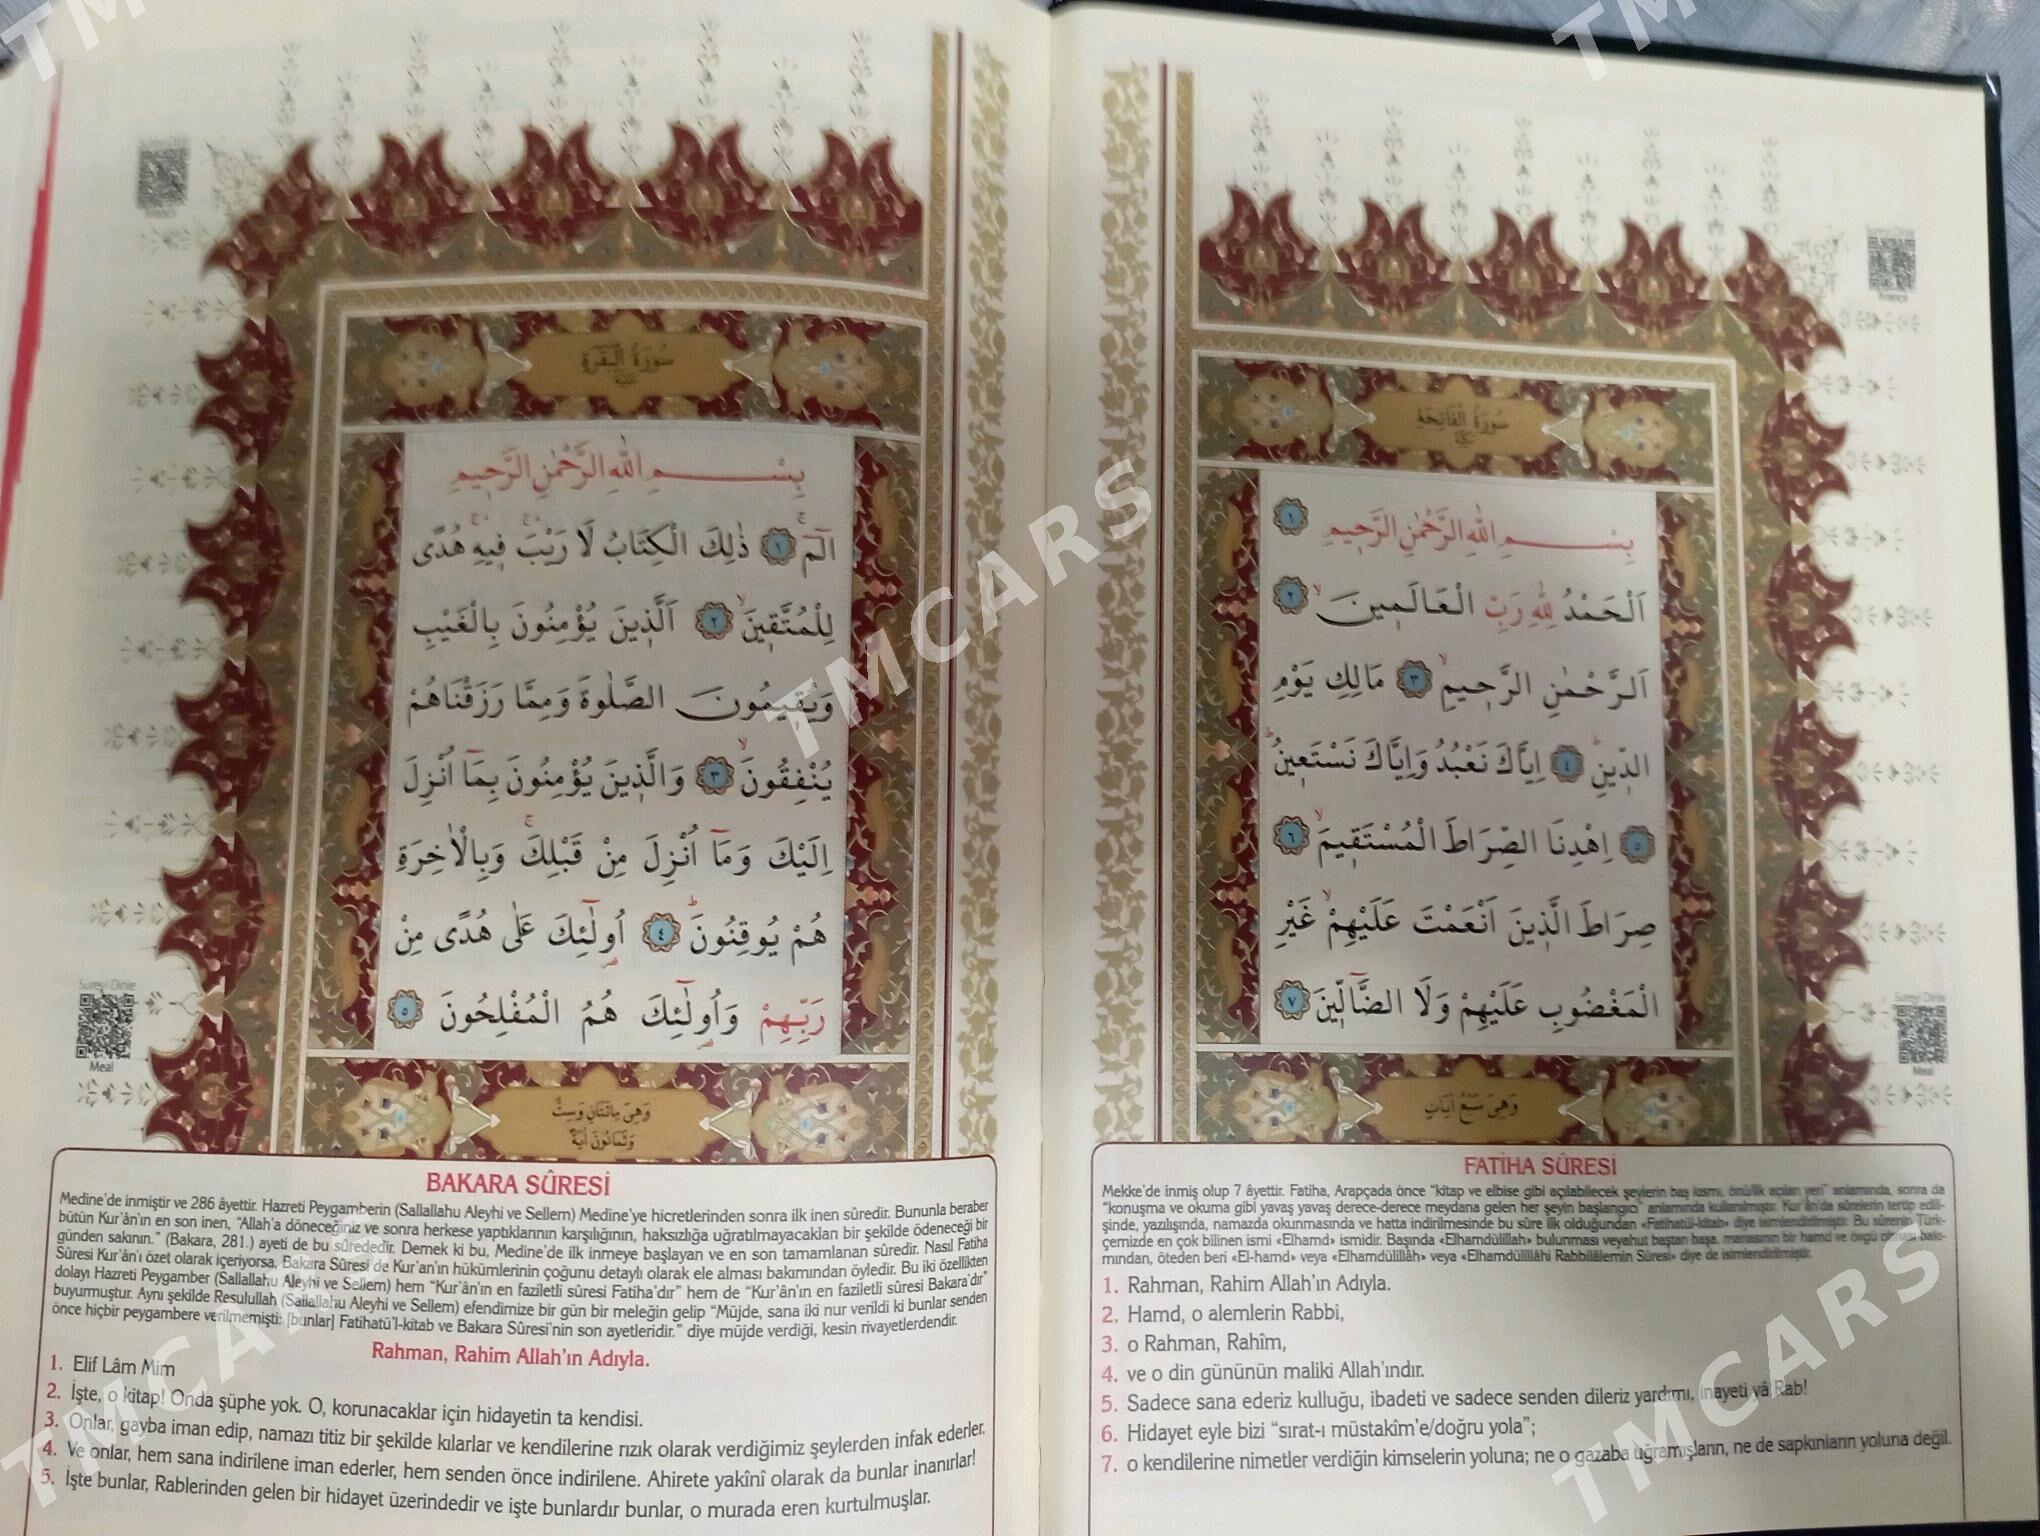 سُورَةُ الْفَاتِحَةِ
بِسْمِ اللّٰهِ الرَّحْمٰنِ الرَّح۪يمِ ١
اَلْحَمْدُ لِلّٰهِ رَبِّ الْعَالَم۪ينَۙ ٢
اَلرَّحْمٰنِ الرَّح۪يمِۙ ٣ مَالِكِ يَوْمِ
الدّ۪ينِۜ ٤ اِيَّاكَ نَعْبُدُ وَاِيَّاكَ نَسْتَع۪ينُۜ
٥ اِهْدِنَا الصِّرَاطَ الْمُسْتَق۪يمَۙ ٦
صِرَاطَ الَّذ۪ينَ اَنْعَمْتَ عَلَيْهِمْۙ غَيْرِ
الْمَغْضُوبِ عَلَيْهِمْ وَلَا الضَّٓالّ۪ينَ ٧
وَهِىَ سَبْعُ اٰيَاتٍ
Meal
FATİHA SÛRESİ
Mekke'de inmiş olup 7 âyettir. Fatiha, Arapçada önce "kitap ve elbise gibi açılabilecek şeylerin baş kısmı, önü/ilk açılan yeri" anlamında, sonra da
"konuşma ve okuma gibi yavaş yavaş derece-derece meydana gelen her şeyin başlangıcı" anlamında kullanılmıştır. Kur'ân'da sûrelerin tertip edili-
şinde, yazılışında, namazda okunmasında ve hatta indirilmesinde bu sûre ilk olduğundan «Fatihatü'l-kitab» diye isimlendirilmiştir. Bu sûrenin Türk-
çemizde en çok bilinen ismi «Elhamd» ismidir. Başında «Elhamdülillah» bulunması veyahut baştan başa, manasının bir hamd ve övgü olması bakı-
mından, öteden beri «El-hamd» veya «Elhamdülillâh» veya «Elhamdülillâhi Rabbilâlemin Sûresi» diye de isimlendirilmiştir.
1. Rahman, Rahim Allah'ın Adıyla.
2. Hamd, o alemlerin Rabbi,
3. o Rahman, Rahîm,
4. ve o din gününün maliki Allah'ındır.
5. Sadece sana ederiz kulluğu, ibadeti ve sadece senden dileriz yardımı, inayeti yâ Rab!
6. Hidayet eyle bizi "sırat-ı müstakîm'e/doğru yola";
7. o kendilerine nimetler verdiğin kimselerin yoluna; ne o gazaba uğramışların, ne de sapkınların yoluna değil.
سُورَةُ الْبَقَرَةِ
بِسْمِ اللّٰهِ الرَّحْمٰنِ الرَّح۪يمِ
الٓمٓۚ ١ ذٰلِكَ الْكِتَابُ لَا رَيْبَۚۛ ف۪يهِۚۛ هُدًى
لِلْمُتَّق۪ينَۙ ٢ اَلَّذ۪ينَ يُؤْمِنُونَ بِالْغَيْبِ
وَيُق۪يمُونَ الصَّلٰوةَ وَمِمَّا رَزَقْنَاهُمْ
يُنْفِقُونَۙ ٣ وَالَّذ۪ينَ يُؤْمِنُونَ بِمَٓا اُنْزِلَ
اِلَيْكَ وَمَٓا اُنْزِلَ مِنْ قَبْلِكَۚ وَبِالْاٰخِرَةِ
هُمْ يُوقِنُونَۜ ٤ اُو۬لٰٓئِكَ عَلٰى هُدًى مِنْ
رَبِّهِمْ وَاُو۬لٰٓئِكَ هُمُ الْمُفْلِحُونَ ٥
وَهِىَ مِائَتَانِ وَسِتٌّ
وَثَمَانُونَ اٰيَةً
Sureyi Dinle
Meal
BAKARA SÛRESİ
Medine'de inmiştir ve 286 âyettir. Hazreti Peygamberin (Sallallahu Aleyhi ve Sellem) Medine'ye hicretlerinden sonra ilk inen sûredir. Bununla beraber
bütün Kur'ân'ın en son inen, "Allah'a döneceğiniz ve sonra herkese yaptıklarının karşılığının, haksızlığa uğratılmayacakları bir şekilde ödeneceği bir
günden sakının." (Bakara, 281.) ayeti de bu sûrededir. Demek ki bu, Medine'de ilk inmeye başlayan ve en son tamamlanan sûredir. Nasıl Fatiha
Sûresi Kur'ân'ı özet olarak içeriyorsa, Bakara Sûresi de Kur'an'ın hükümlerinin çoğunu detaylı olarak ele alması bakımından öyledir. Bu iki özellikten
dolayı Hazreti Peygamber (Sallallahu Aleyhi ve Sellem) hem "Kur'ân'ın en faziletli sûresi Fatiha'dır" hem de "Kur'ân'ın en faziletli sûresi Bakara'dır"
buyurmuştur. Aynı şekilde Resulullah (Sallallahu Aleyhi ve Sellem) efendimize bir gün bir meleğin gelip "Müjde, sana iki nur verildi ki bunlar senden
önce hiçbir peygambere verilmemişti: [bunlar] Fatihatü'l-kitab ve Bakara Sûresi'nin son ayetleridir." diye müjde verdiği, kesin rivayetlerdendir.
Rahman, Rahim Allah'ın Adıyla.
1. Elif Lâm Mim
2. İşte, o kitap! Onda şüphe yok. O, korunacaklar için hidayetin ta kendisi.
3. Onlar, gayba iman edip, namazı titiz bir şekilde kılarlar ve kendilerine rızık olarak verdiğimiz şeylerden infak ederler.
4. Ve onlar, hem sana indirilene iman ederler, hem senden önce indirilene. Ahirete yakînî olarak da bunlar inanırlar!
5. İşte bunlar, Rablerinden gelen bir hidayet üzerindedir ve işte bunlardır bunlar, o murada eren kurtulmuşlar.
TMCARS
TMCARS
TMCARS